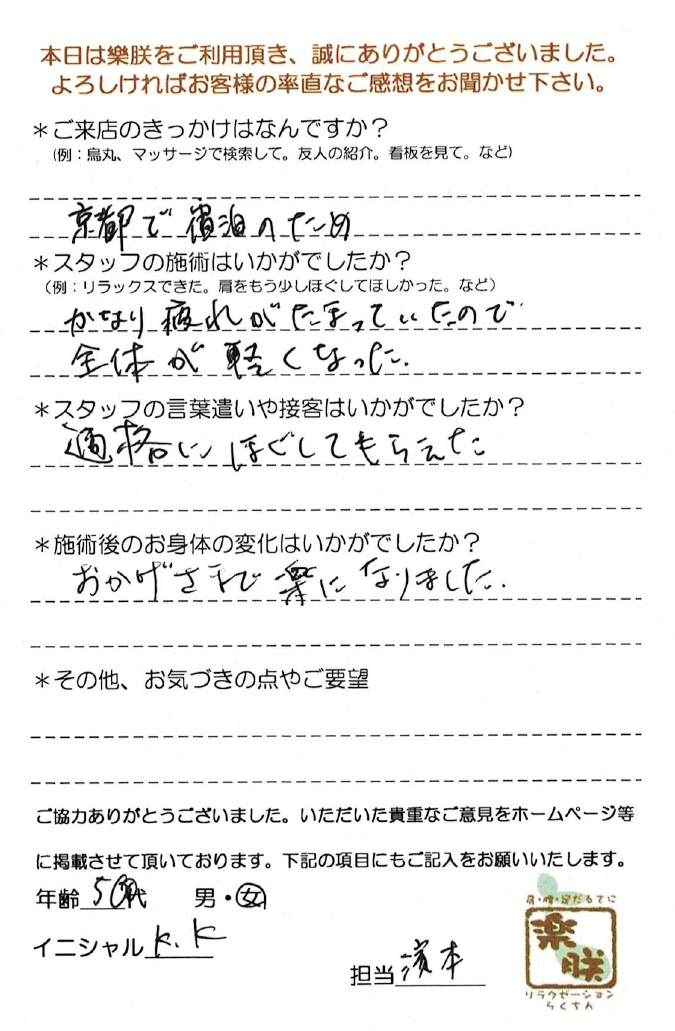 本日は樂朕をご利用頂き、誠にありがとうございました。
よろしければお客様の率直なご感想をお聞かせ下さい。
＊ご来店のきっかけはなんですか？
(例：烏丸、マッサージで検索して。友人の紹介。看板を見て。など)
京都で宿泊のため
＊スタッフの施術はいかがでしたか？
(例：リラックスできた。肩をもう少しほぐしてほしかった。など)
かなり疲れがたまっていたので
全体が軽くなった.
＊スタッフの言葉遣いや接客はいかがでしたか？
適格にほぐしてもらえた
＊施術後のお身体の変化はいかがでしたか？
おかげさまで楽になりました.
＊その他、お気づきの点やご要望
ご協力ありがとうございました。いただいた貴重なご意見をホームページ等
に掲載させて頂いております。下記の項目にもご記入をお願いいたします。
年齢 50代 男・女
イニシャル K.K
担当 濱本
肩・腰・足だるてに
楽朕
リラクゼーション
らくちん